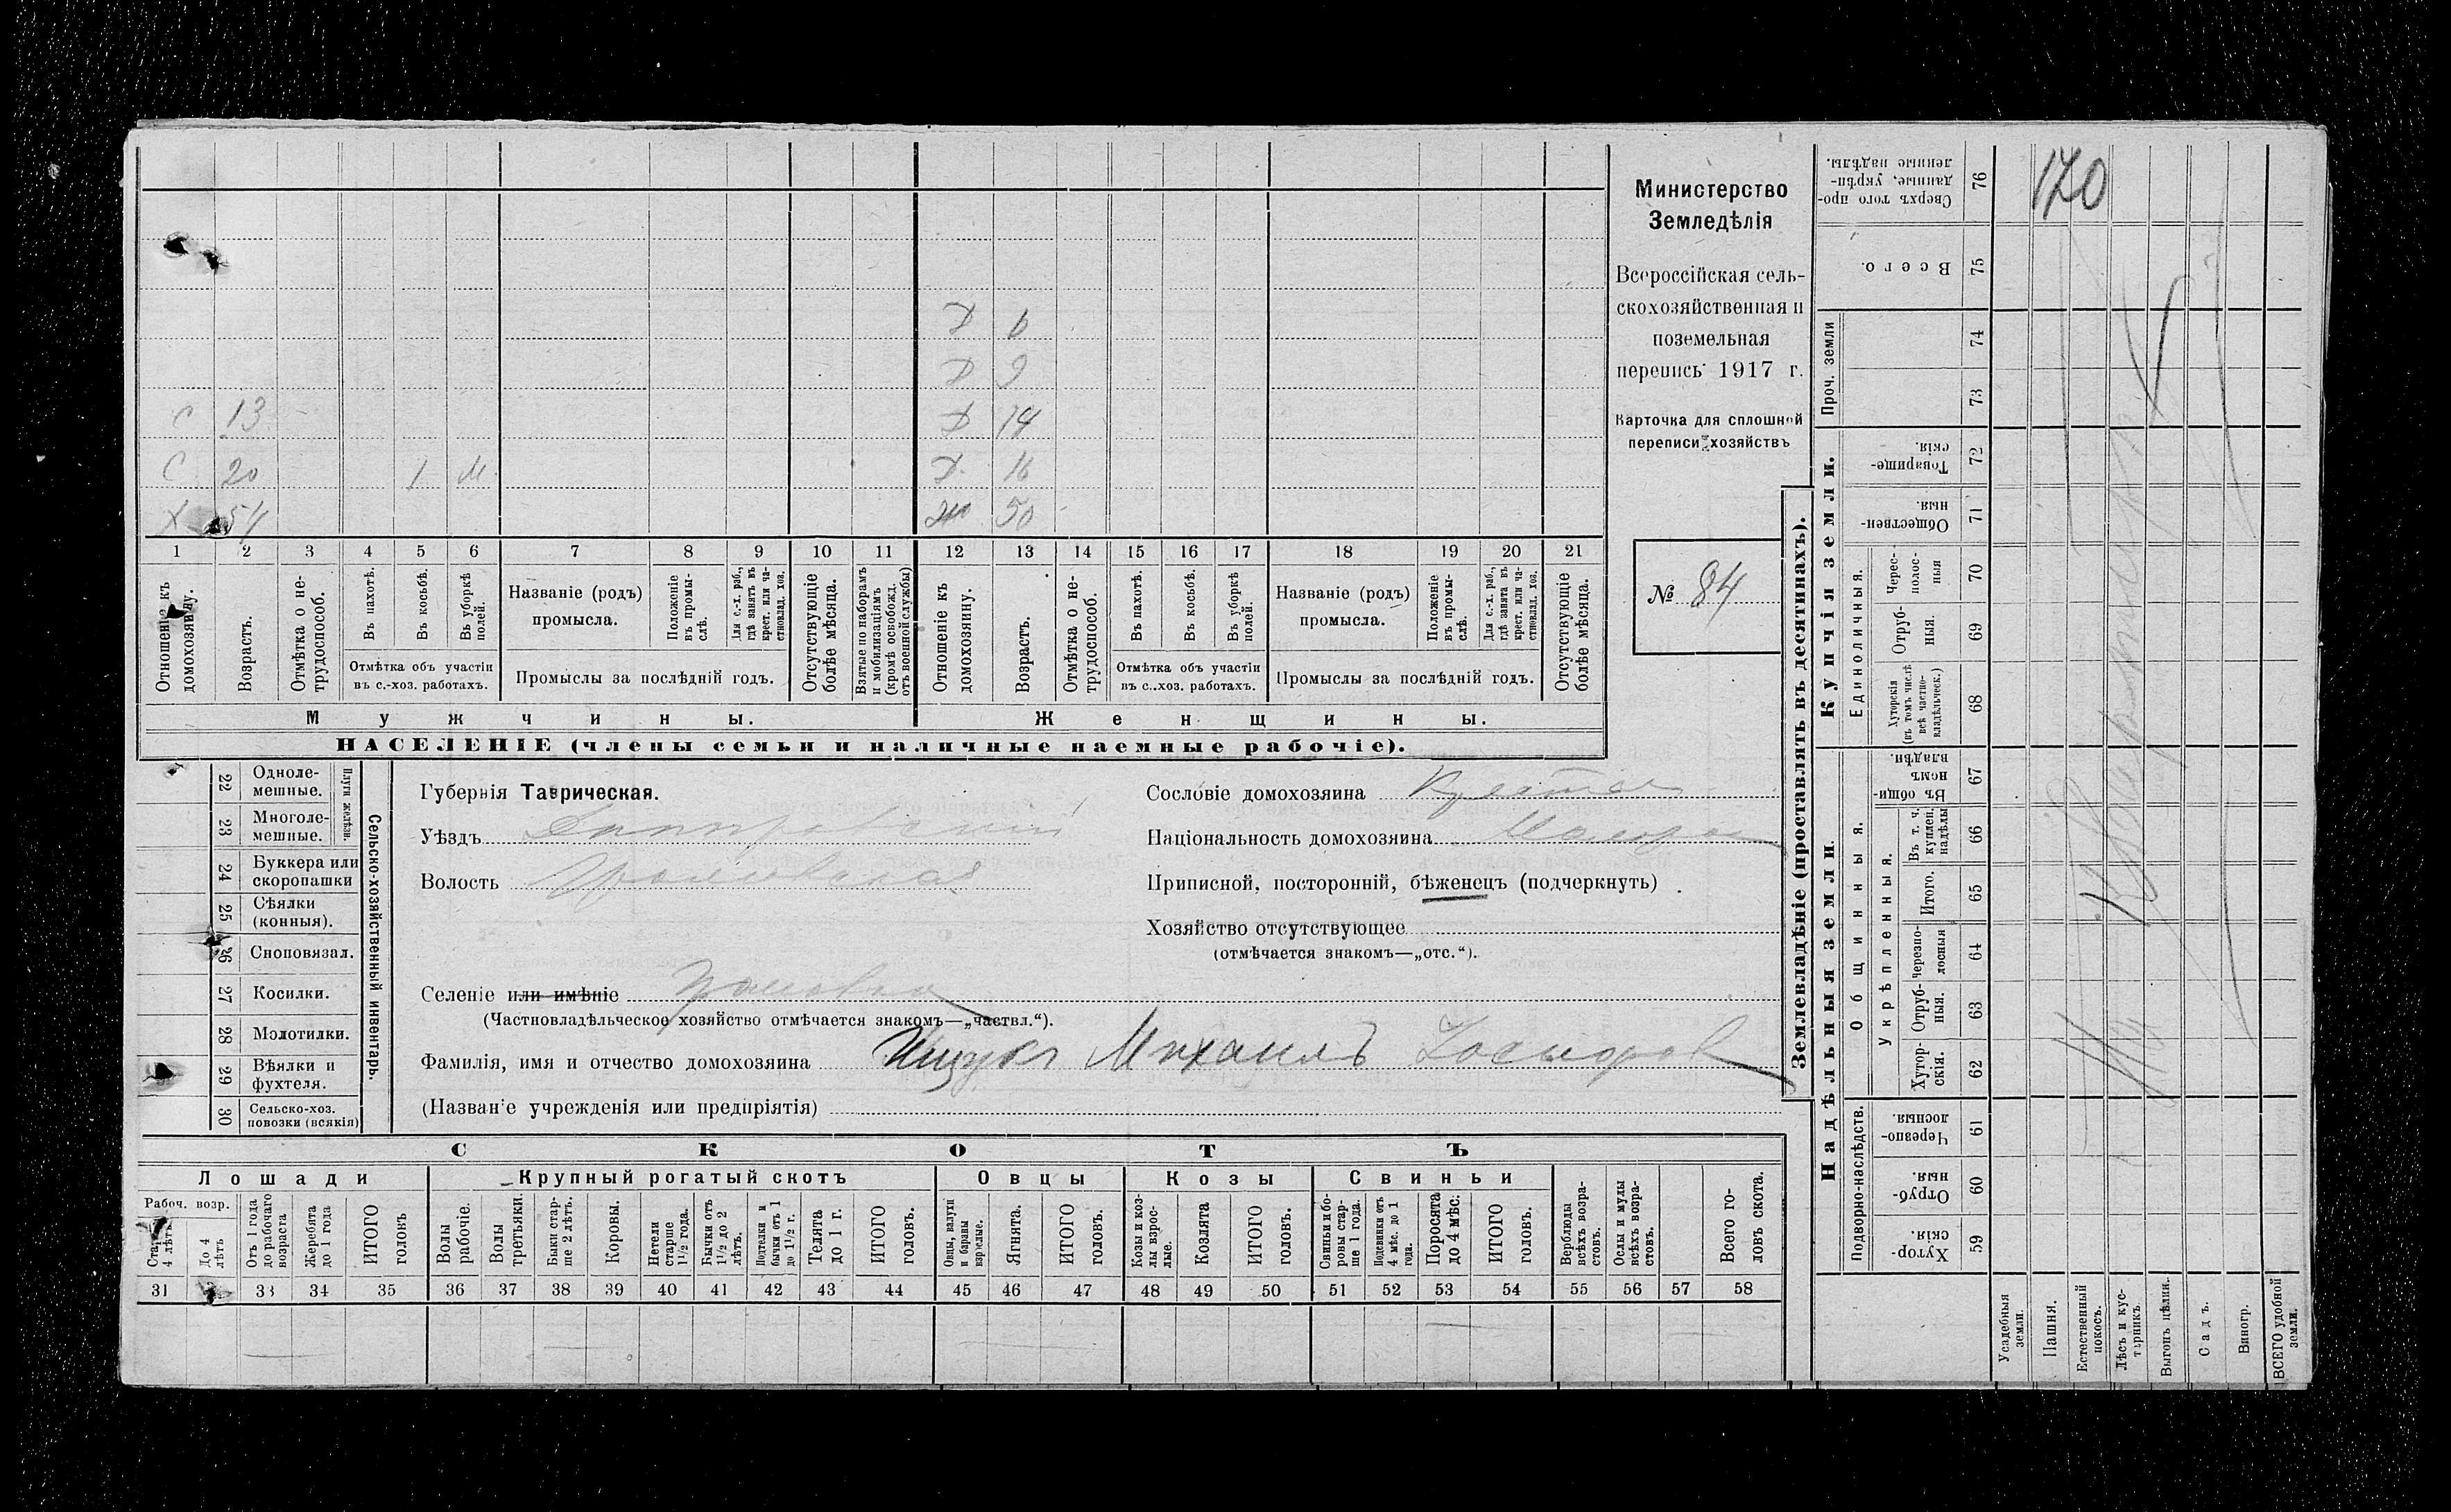 Министерство
Земледѣлія
Всероссійская сель-
скохозяйственная и
поземельная
перепись 1917 г.
Карточка для сплошной
переписи хозяйствъ
№ 84
Д 6
Д 9
С 13
Д 14
С 20 1 М
Д 16
Х 54
Ж 50
1 2 3 4 5 6 7 8 9 10 11 12 13 14 15 16 17 18 19 20 21
Отношеніе къ домохозяину.
Возрастъ.
Отмѣтка о не-трудоспособ.
Въ пахотѣ.
Въ косьбѣ.
Въ уборкѣ полей.
Отмѣтка объ участіи
въ с.-хоз. работахъ.
Названіе (родъ)
промысла.
Положеніе въ промы-слѣ.
Для с.-х. раб., гдѣ занятъ въ крест. или ча-стновлад. хоз.
Промыслы за послѣдній годъ.
Отсутствующіе болѣе мѣсяца.
Взятые по наборамъ и мобилизаціямъ (кромѣ освобожд. отъ военной службы)
Отношеніе къ домохозяину.
Возрастъ.
Отмѣтка о не-трудоспособ.
Въ пахотѣ.
Въ косьбѣ.
Въ уборкѣ полей.
Отмѣтка объ участіи
въ с..хоз. работахъ.
Названіе (родъ)
промысла.
Положеніе въ промы-слѣ.
Для с.-х. раб., гдѣ занята въ крест. или ча-стновлад. хоз.
Промыслы за послѣдній годъ.
Отсутствующіе болѣе мѣсяца.
Мужчины.
Женщины.
НАСЕЛЕНІЕ (члены семьи и наличные наемные рабочіе).
22 Одноле-мешные.
23 Многоле-мешные.
Плуги желѣзн.
24 Буккера или скоропашки
25 Сѣялки (конныя).
26 Сноповязал.
27 Косилки.
28 Молотилки.
29 Вѣялки и фухтеля.
30 Сельско-хоз. повозки (всякія)
Сельско-хозяйственный инвентарь.
Губернія Таврическая.
Уѣздъ Днепровский
Волость Громовская
Селеніе или имѣніе Громовка
(Частновладѣльческое хозяйство отмѣчается знакомъ—„частвл.“).
Фамилія, имя и отчество домохозяина Ищукъ Михаилъ
(Названіе учрежденія или предпріятія)
Сословіе домохозяина
Національность домохозяина Малорос
Приписной, посторонній, бѣженецъ (подчеркнуть)
Хозяйство отсутствующее
(отмѣчается знакомъ—„отс.“).
СКОТЪ
Лошади
Рабоч. возр.
Старше 4 лѣтъ
До 4 лѣтъ
Отъ 1 года до рабочаго возраста
Жеребята до 1 года
ИТОГО головъ
Крупный рогатый скотъ
Волы рабочіе.
Волы третьяки.
Быки стар-ше 2 лѣтъ.
Коровы.
Нетели старше 1½ года.
Бычки отъ 1½ до 2 лѣтъ.
Подтелки и бычки отъ 1 до 1½ г.
Телята до 1 г.
ИТОГО головъ.
Овцы
Овцы, валухи и бараны взрослые.
Ягнята.
ИТОГО головъ.
Козы
Козы и коз-лы взрос-лые.
Козлята
ИТОГО головъ.
Свиньи
Свиньи и бо-ровы стар-ше 1 года.
Подсвинки отъ 4 мѣс. до 1 года.
Поросята до 4 мѣс.
ИТОГО головъ.
Верблюды всѣхъ возра-стовъ.
Ослы и мулы всѣхъ возра-стовъ.
Всего го-ловъ скота.
31 33 34 35 36 37 38 39 40 41 42 43 44 45 46 47 48 49 50 51 52 53 54 55 56 57 58
Землевладѣніе (проставлять въ десятинахъ).
Надѣльныя земли.
Купчія земли.
Проч. земли
Подворно-наслѣдств.
Общинныя.
Укрѣпленныя.
Единоличныя.
Сверхъ того про-данные, укрѣп-ленные надѣлы. 76
Всего. 75
74
73
Товарище-скія 72
Обществен-ныя. 71
Черес-полос-ныя 70
Отруб-ныя. 69
Хуторскія (въ томъ числѣ всѣ частно-владѣльческ.) 68
Въ общин-номъ владѣн. 67
Въ т. ч. куплен. надѣлы 66
Итого. 65
черезпо-лосныя 64
Отруб-ныя. 63
Хутор-скія. 62
Черезпо-лосныя. 61
Отруб-ныя. 60
Хутор-скія. 59
Усадебныя земли.
Пашня.
Естественный покосъ.
Лѣсъ и кус-тарникъ.
Выгонъ цѣлин.
Садъ.
Виногр.
ВСЕГО удобной земли.
170
Квартирант